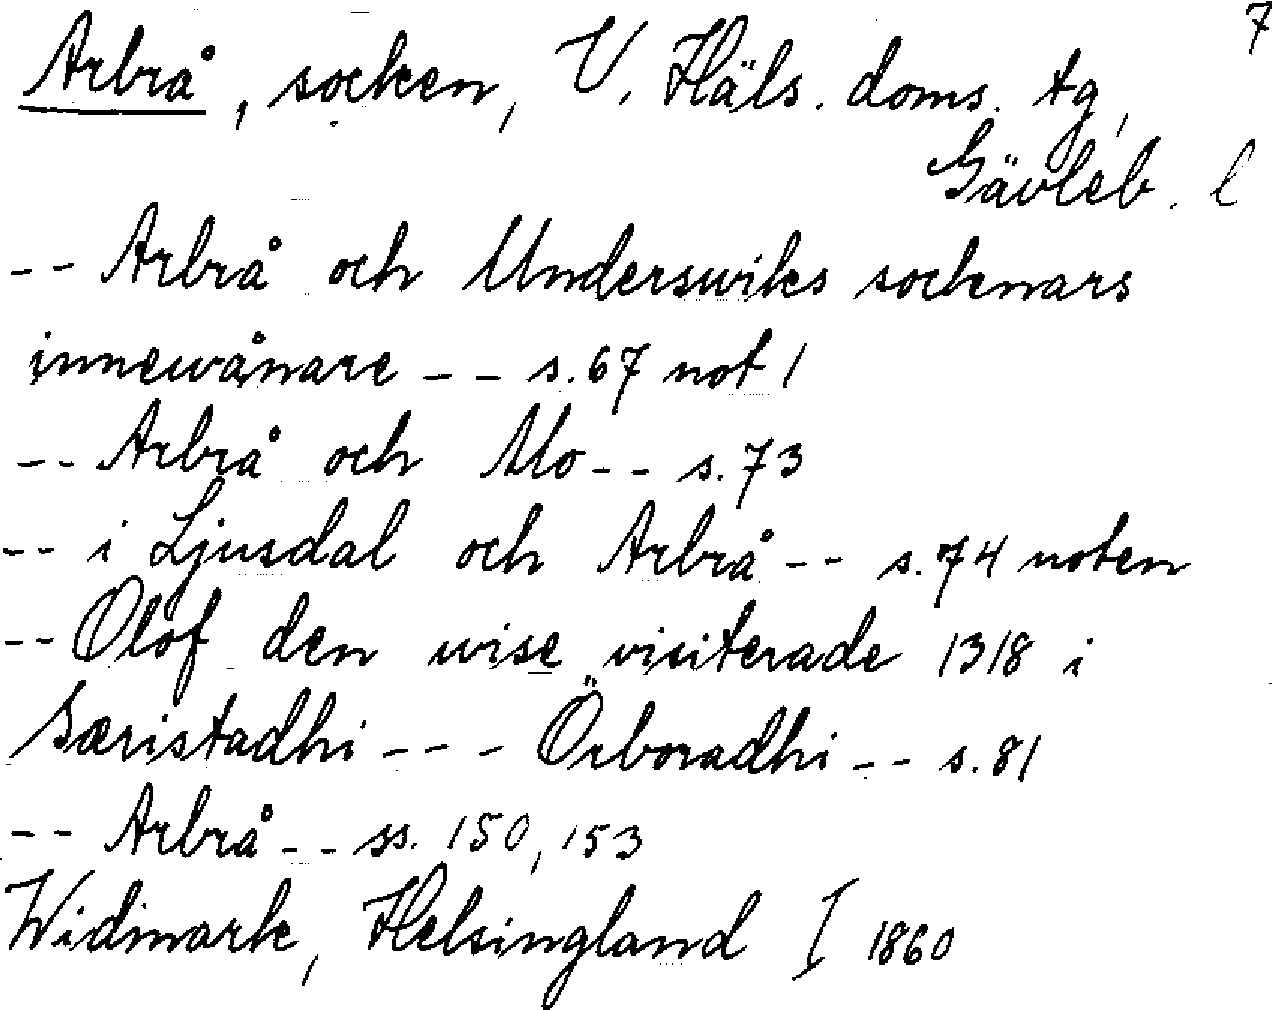 7
Arbrå, socken, V. Häls. doms. tg,
Gävleb. l
-- Arbrå och Underswiks socknars
innewånare -- s. 67 not 1
-- Arbrå och Mo -- s. 73
-- i Ljusdal och Arbrå -- s. 74 noten
-- Olof den wise visiterade 1318 i
Særistadhi --- Örboradhi -- s. 81
-- Arbrå -- ss. 150, 153
Widmark, Helsingland I 1860